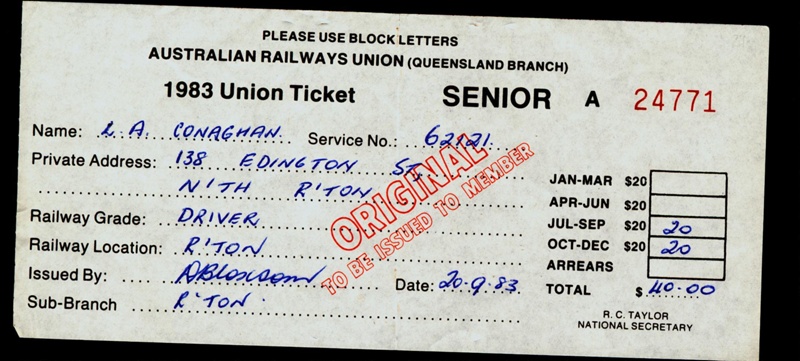 PLEASE USE BLOCK LETTERS
AUSTRALIAN RAILWAYS UNION (QUEENSLAND BRANCH)
1983 Union Ticket SENIOR A 24771
Name: L. A. CONAGHAN. Service No.: 62121
Private Address: 138 EDINGTON ST,
N'TH R'TON
Railway Grade: DRIVER
Railway Location: R'TON
Issued By: Date: 20.9.83
Sub-Branch R'TON.
ORIGINAL
TO BE ISSUED TO MEMBER
JAN-MAR $20
APR-JUN $20
JUL-SEP $20 20
OCT-DEC $20 20
ARREARS
TOTAL $ 40.00
R. C. TAYLOR
NATIONAL SECRETARY